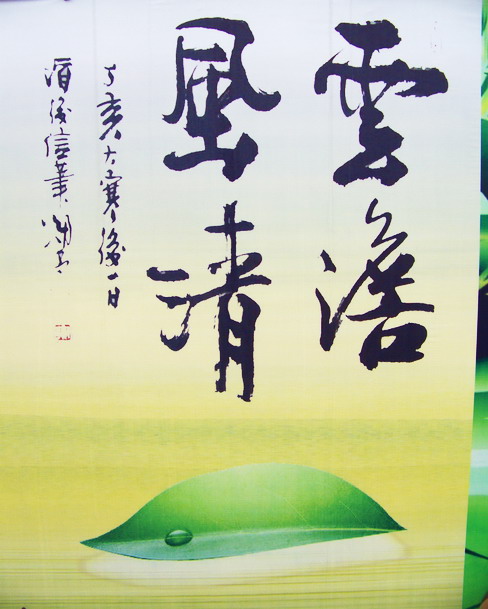 雲澹
風清
丁亥大寒後一日
酒後信筆